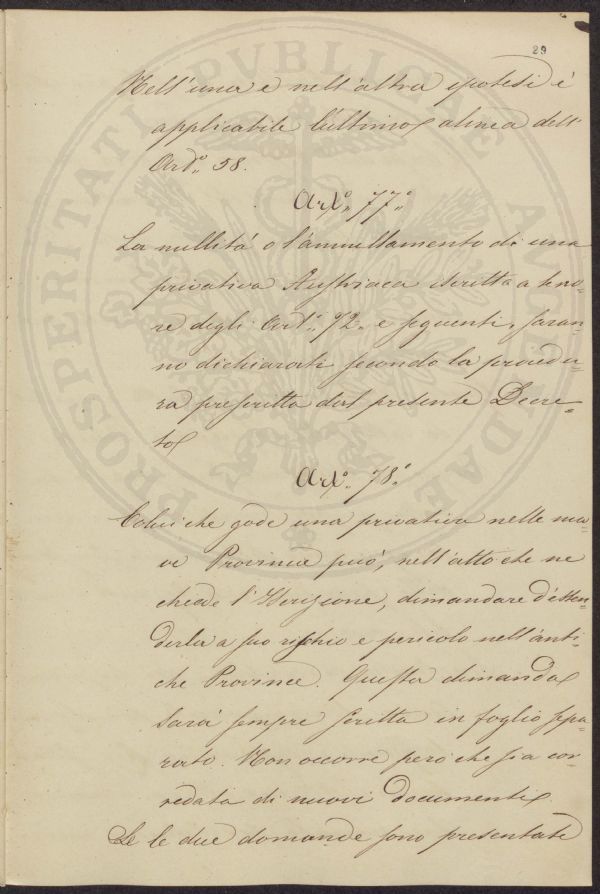 29
Nell'una e nell'altra ipotesi é
applicabile l'ultimo alinea dell'
Art.º 58.
Art.º 77.º
La nullitá o l'annullamento di una
privativa Austriaca iscritta a teno=
re degli Art.ⁱ 72. e seguenti, saran=
no dichiarati secondo la procedu=
ra prescritta dal presente Decre=
to
Art.º 78.º
Colui che gode una privativa nelle nuo=
ve Provincie puó, nell'atto che ne
chiede l'Iscrizione, dimandare d'esten=
derla a suo rischio e pericolo nell'anti=
che Province. Questa dimanda
sará sempre scritta in foglio sepa=
rato. Non occorre però che sia cor=
redata di nuovi documenti.
Se le due domande sono presentate
PROSPERITATI PVBLICAE AVGENDAE